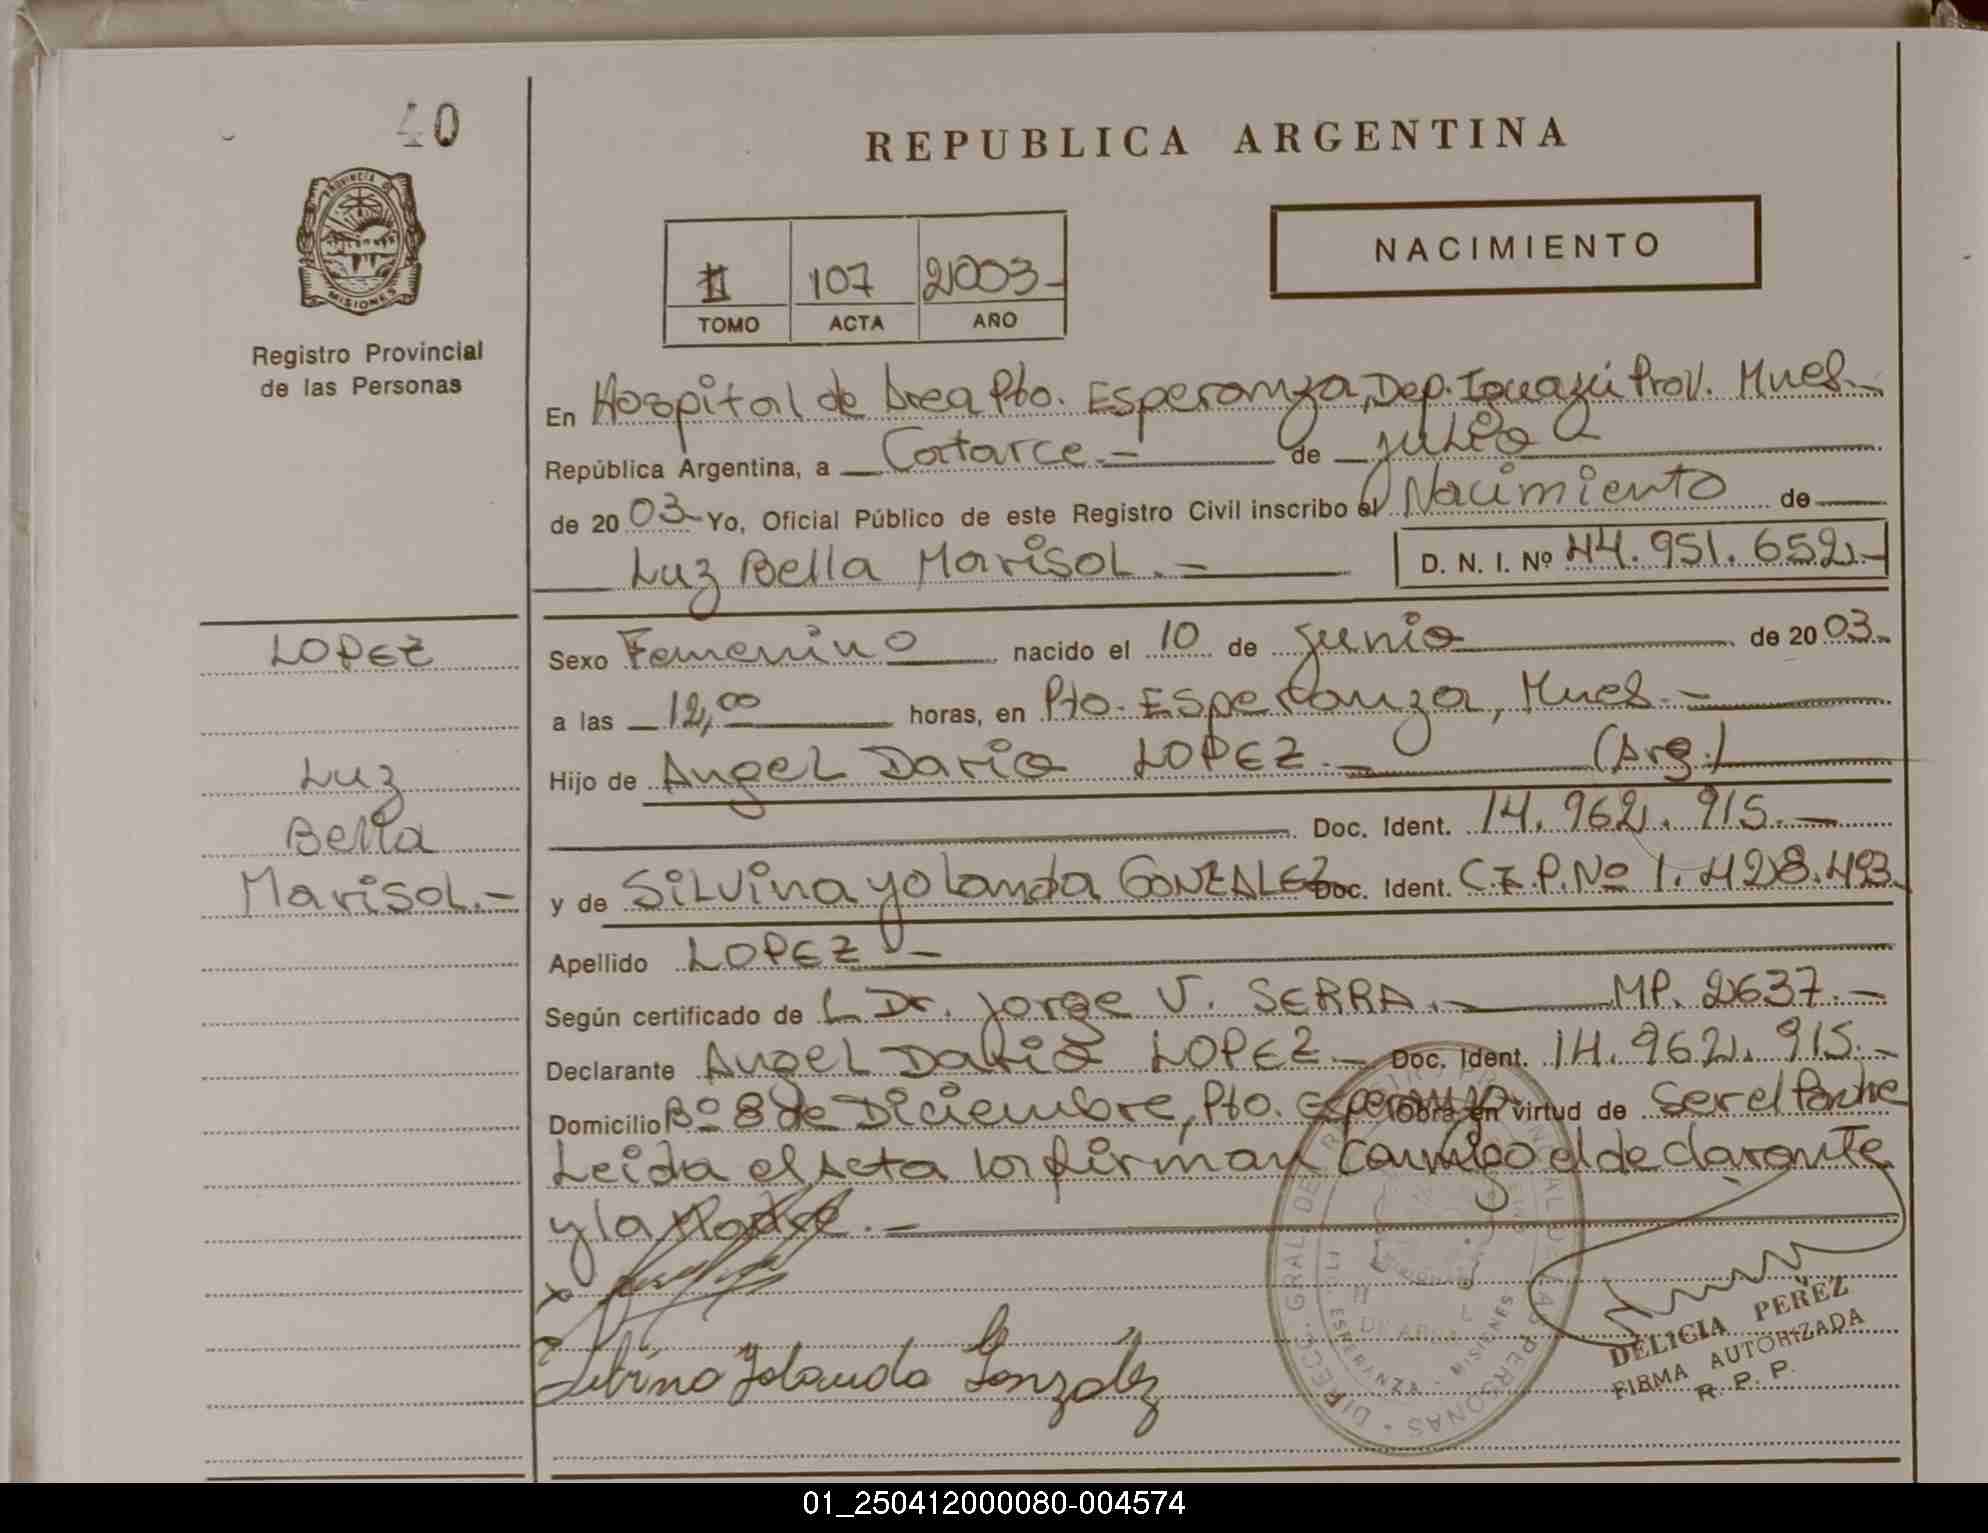 40
REPUBLICA ARGENTINA
PROVINCIA DE
MISIONES
Registro Provincial
de las Personas
II 107 2003-
TOMO ACTA AÑO
NACIMIENTO
En Hospital de Area Pto. Esperanza, Dep. Iguazú Prov. Mnes.-
República Argentina, a Catorce.- de Julio
de 20 03- Yo, Oficial Público de este Registro Civil inscribo el Nacimiento de
Luz Bella Marisol.- D. N. I. Nº 44.951.652.-
LOPEZ
Sexo Femenino nacido el 10 de Junio de 20 03-
a las 12,00 horas, en Pto. Esperanza, Mnes.-
Luz
Hijo de Angel Dario LOPEZ.- (Arg.)
Bella
Doc. Ident. 14.962.915.-
Marisol.-
y de Silvina Yolanda GONZALEZ Doc. Ident. C.I.P.Nº 1.428.493
Apellido LOPEZ -
Según certificado de L Dr. Jorge V. SERRA.- MP. 2637.-
Declarante Angel Dario LOPEZ.- Doc. Ident. 14.962.915.-
Domicilio Bº 8 de Diciembre, Pto. Esperanza Obra en virtud de Ser el Padre
Leida el Acta la firman conmigo el declarante
y la Madre.-
Silvina Yolanda González
DIRECC. GRAL. DEL REGISTRO PROVINCIAL DE LAS PERSONAS
ESPERANZA - MISIONES
DELICIA PEREZ
FIRMA AUTORIZADA
R. P. P.
01_250412000080-004574